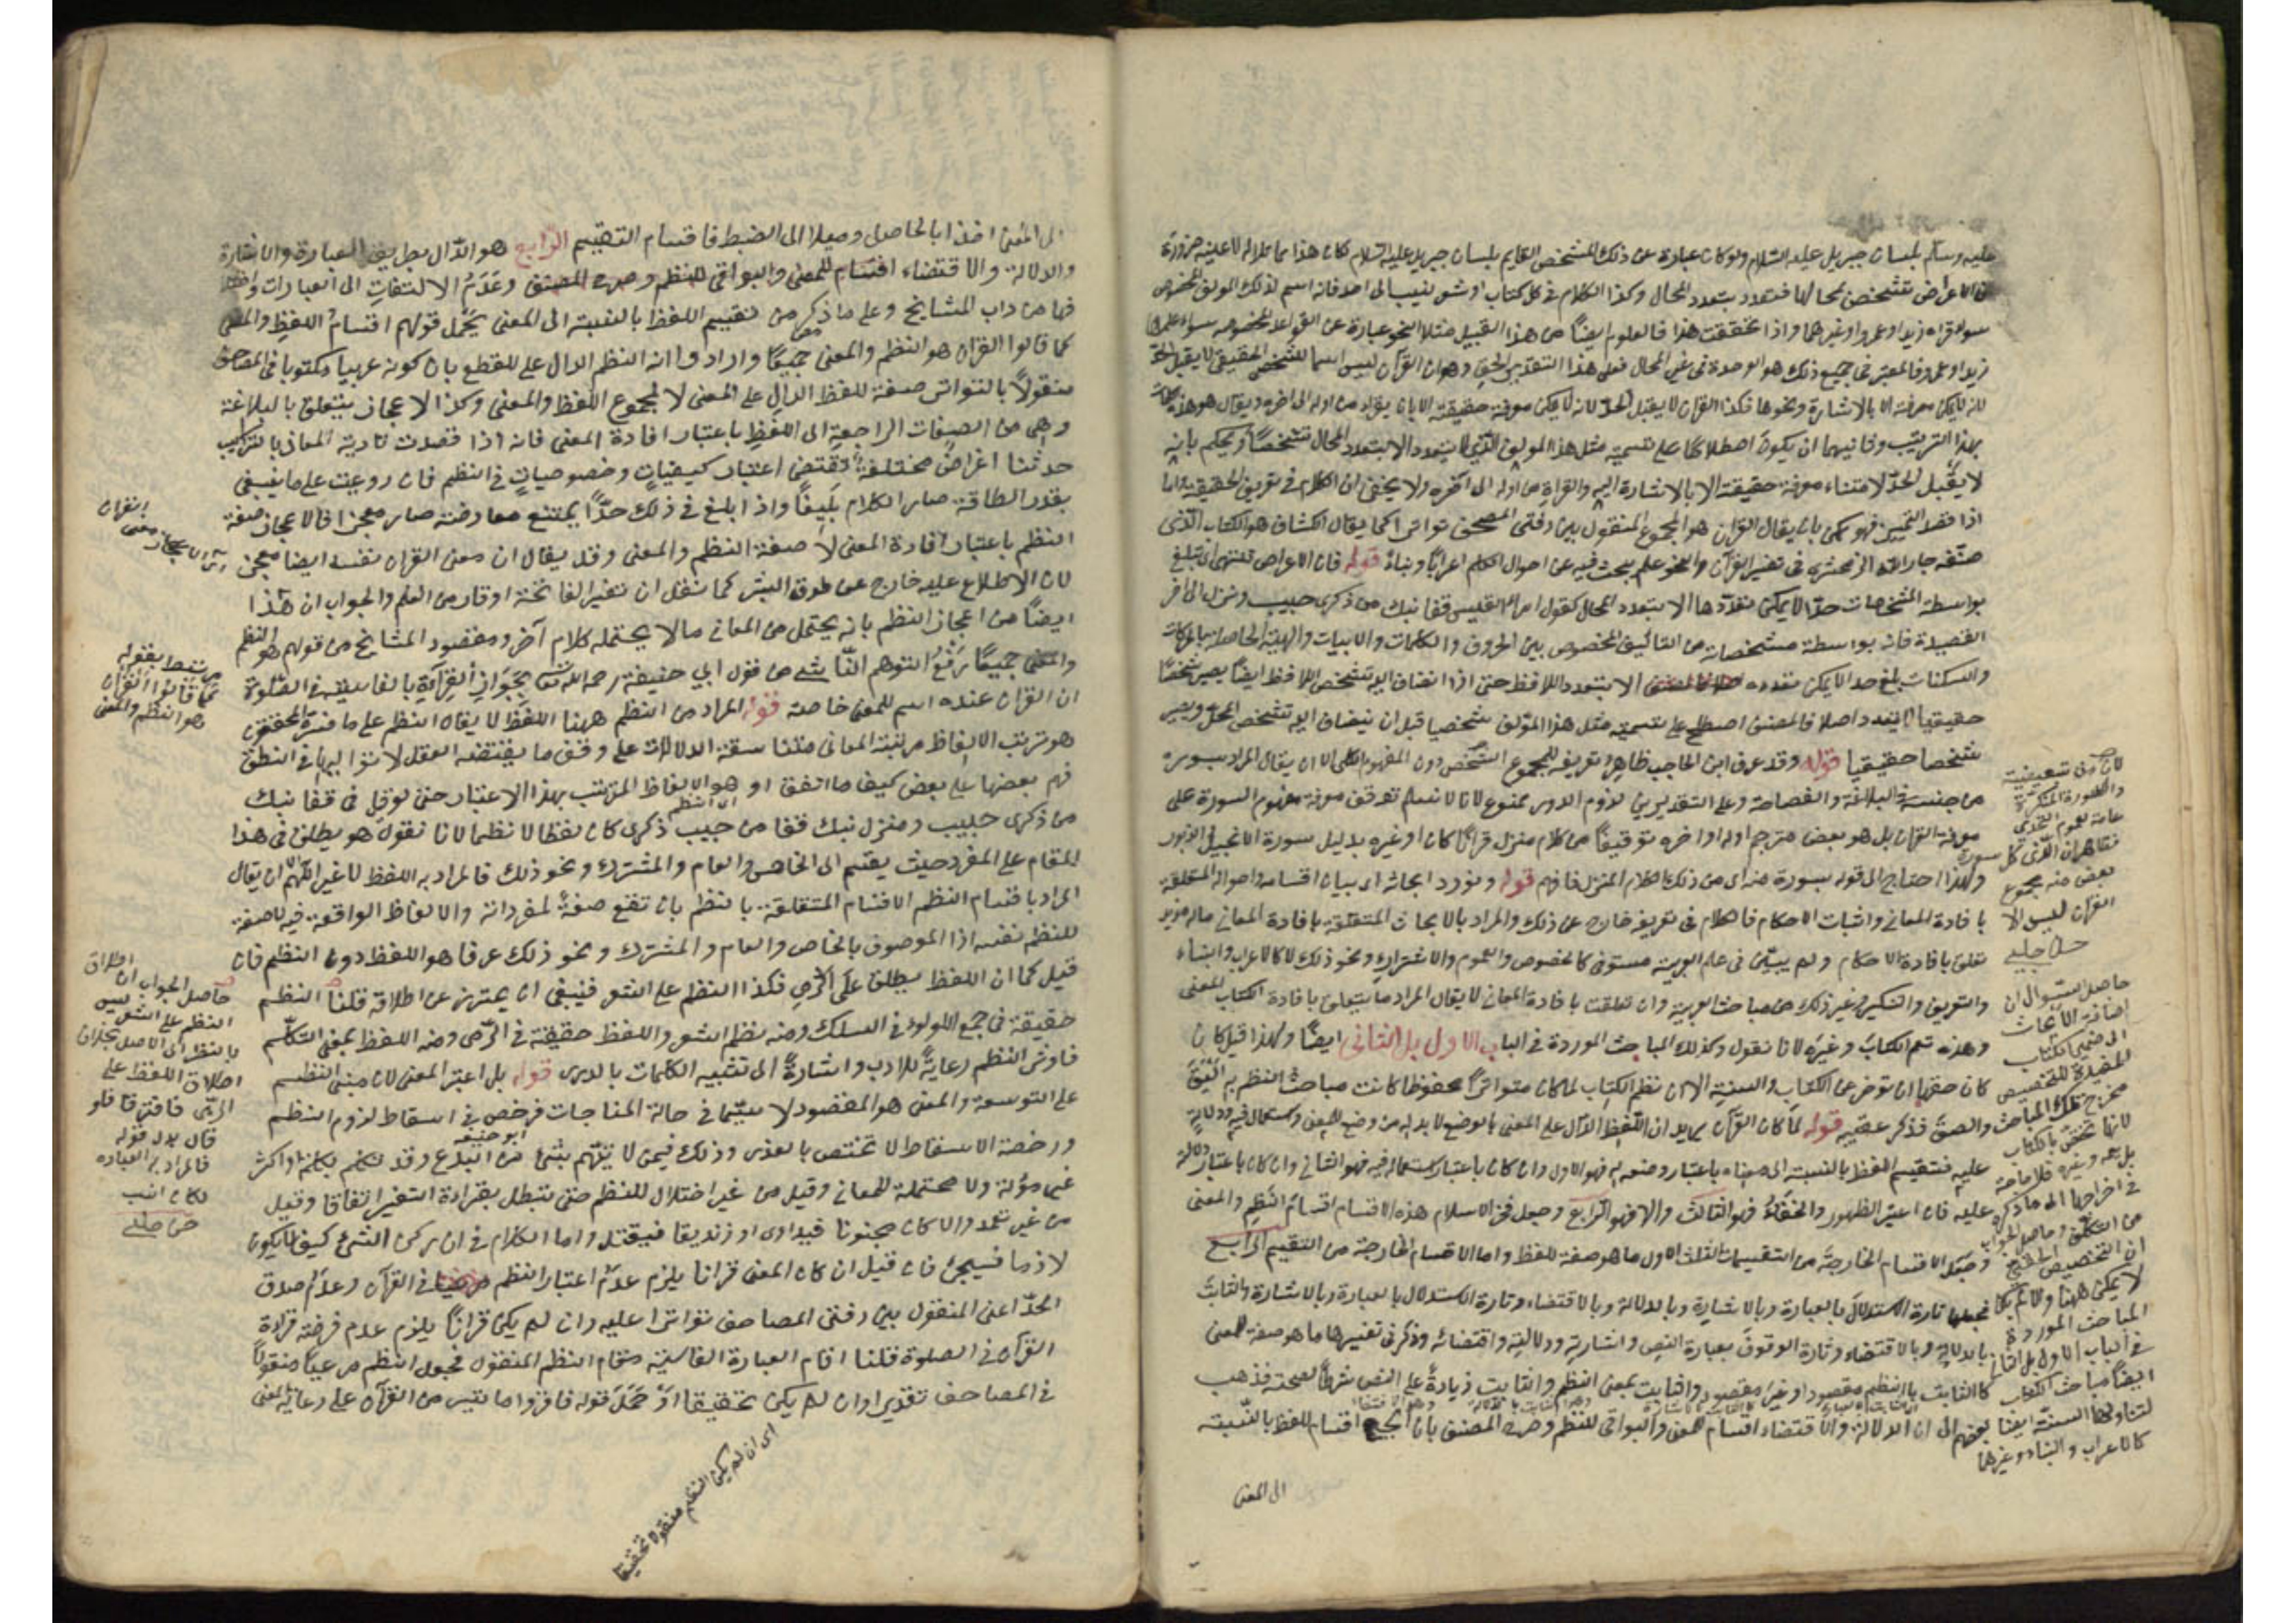 عليه وسلم بلسان جبريل عليه السلام ولو كان عبارة عن ذلك المشخص القايم بلسان جبريل عليه السلام لكان هذا مماثلا له لا عينه ضرورة
ان الاعراض تتشخص بمحالها فتتعدد بتعدد المحال وكذا الكلام في كل كتاب او شعر نسب الى احد فانه اسم لذلك المولف المخصوص
سواء قراه زيد او عمرو او غيرهما واذا تحققت هذا فالعلوم ايضا من هذا القبيل مثلا النحو عبارة عن القواعد المخصوصة سواء علمها
زيد او عمرو فالمعتبر في جميع ذلك هو الوحدة في غير المحال فعلى هذا التقدير الحق وهو ان القرآن ليس اسما للشخص الحقيقي لا يقبل الحد
لانه لا يمكن معرفته الا بالاشارة ونحوها فكذا القران لا يقبل الحد لانه لا يمكن معرفة حقيقته الا بان يقراء من اوله الى اخره ويقال هو هذه الكلمات
بهذا الترتيب وثانيهما ان يكون اصطلاحا على تسمية مثل هذا المولف الذي لا يتعدد الا بتعدد المحال شخصا ويحكم بانه
لا يقبل الحد لامتناع معرفة حقيقته الا بالاشارة اليه والقراة من اوله الى آخره ولا يخفى ان الكلام في تعريف الحقيقة واما
اذا قصد التمييز فهو ممكن بان يقال القران هو المجموع المنقول بين دفتي المصحف تواترا كما يقال الكشاف هو الكتاب الذي
صنفه جار الله الزمخشري في تفسير القرآن والنحو علم يبحث فيه عن احوال الكلم اعرابا وبناء قوله فان الاعراض تنتهي اي تبلغ
بواسطة المشخصات حدا لا يمكن تعددها الا بتعدد المحال كقول امراء القيس قفا نبك من ذكرى حبيب ومنزل الى اخر
القصيدة فانه بواسطة مشخصاته من التاليف المخصوص بين الحروف والكلمات والابيات والهيئة الحاصلة بالحركات
والسكنات بلغ حدا لا يمكن تعدده الا بتعدد اللافظ حتى اذا انضاف اليه تشخص اللافظ ايضا يصير شخصا
حقيقيا لا يتعدد اصلا فالمصنف اصطلح على تسمية مثل هذا المؤلف شخصيا قبل ان ينضاف اليه تشخص المحل ويصير
شخصا حقيقيا قوله وقد عرف ابن الحاجب ظاهره تعريف للمجموع الشخصي دون المفهوم الكلي الا ان يقال المراد بسورة
من جنسه في البلاغة والفصاحة وعلى التقديرين لزوم الدور ممنوع لانا لا نسلم توقف معرفة مفهوم السورة على
معرفة القران بل هو بعض مترجم اوله واخره توقيفا من كلام منزل قرانا كان او غيره بدليل سورة الانجيل والزبور
ولهذا احتاج الى قوله بسورة منه اي من ذلك الكلام المنزل فافهم قوله ونورد ابحاثه اى بيان اقسامه واحواله المتعلقة
با فادة المعاني واثبات الاحكام فالكلام في تعريفه خارج عن ذلك والمراد بالابحاث المتعلقة بافادة المعاني ماله مزيد
تعلق بافادة الاحكام ولم يبين في علم العربية مستوفى كالخصوص والعموم والاشتراك ونحو ذلك لا كالاعراب والبناء
والتعريف والتنكير وغير ذلك من مباحث العربية وان تعلقت بافادة المعاني لا يقال المراد ما يتعلق بافادة الكتاب المعنى
وهذه تعم الكتاب وغيره لانا نقول وكذلك المباحث الموردة في الباب الاول بل الثاني ايضا ولهذا قيل كان
كان حقها ان توخر عن الكتاب والسنة الا ان نظم الكتاب لما كان متواترا محفوظا كانت مباحث النظم به اليق
والصق فذكر عقيبه قوله لما كان القرآن يريد ان اللفظ الدال على المعنى بالوضع لا بد له من وضع للمعنى واستعمال فيه ودلالة
عليه فتقسيم اللفظ بالنسبة الى معناه باعتبار وضعه له فهو الاول وان كان باعتبار استعماله فيه فهو الثاني وان كان باعتبار دلالته
عليه فان اعتبر الظهور والخفاء فهو الثالث والا فهو الرابع وجعل فخر الاسلام هذه الاقسام اقسام النظم والمعنى
وجعل الاقسام الخارجة من التقسيمات الثلث الاول ما هو صفة للفظ واما الاقسام الخارجة من التقسيم الرابع
فجعلها تارة الاستدلال بالعبارة وبالاشارة وبالدلالة وبالاقتضاء وتارة الاستدلال بالعبارة وبالاشارة والثابت
بالدلالة وبالاقتضاء وتارة الوقوف بعبارة النص واشارته ودلالته واقتضائه وذكر في تفسيرها ما هو صفة للمعنى
كالثابت بالنظم مقصودا وغير مقصود والثابت بمعنى النظم والثابت زيادة على النص شرطا لصحته فذهب
بعضهم الى ان الدلالة والاقتضاء اقسام للمعنى والبواقي للنظم وصرح المصنف بان الجميع اقسام اللفظ بالنسبة
الى المعنى
لان في شعبيته
والسورة المنكرة
عامة لعموم التحدي
بعض منه مجموع
القرآن ليس الا
حسن جلبي
حاصل السوال ان
اضافة الابحاث
الى ضمير الكتاب
المفيدة للتخصيص
مخرج تلك المباحث
لانها لا تختص بالكتاب
المباحث الموردة
في الباب الاول بل الثاني
ايضا مباحث الكتاب
لتناولها السنة ايضا
كالاعراب والبناء وغيرهما
الى المعنى اخذا بالحاصل وميلا الى الضبط فاقسام التقسيم الرابع هو الدال بطريق العبارة والاشارة
والدلالة والاقتضاء اقسام للمعنى والبواقي للنظم وصرح المصنف وعدم الالتفات الى العبارات
فيها من داب المشايخ وعلى ما ذكر من تقسيم اللفظ بالنسبة الى المعنى يحمل قولهم اقسام اللفظ والمعنى
كما قالوا القرآن هو النظم والمعنى جميعا وارادوا انه النظم الدال على المعنى للقطع بان كونه عربيا مكتوبا في المصاحف
منقولا بالتواتر صفة للفظ الدال على المعنى لا لمجموع اللفظ والمعنى وكذا الاعجاز يتعلق بالبلاغة
وهي من الصفات الراجعة الى اللفظ باعتبار افادة المعنى فانه اذا قصدت تادية المعاني بالتراكيب
حدثنا اغراض مختلفة تقتضي اعتبار كيفيات وخصوصيات في النظم فان روعيت على ما ينبغي
بقدر الطاقة صار الكلام بليغا واذا بلغ في ذلك حدا يمتنع معارضته صار معجزا فالاعجاز صفة
النظم باعتبار افادة المعنى لا صفة النظم والمعنى وقد يقال ان معنى القران نفسه ايضا معجز
لان الاطلاع عليه خارج عن طوق البشر كما نقل ان تفسير الفاتحة اوقار من العلم والجواب ان هذا
ايضا من اعجاز النظم بانه يحتمل من المعاني ما لا يحتمله كلام آخر ومقصود المشايخ من قولهم هو النظم
والمعنى جميعا رفع التوهم الناشئ من قول ابي حنيفة رحمه الله بجواز القراءة بالفارسية في الصلوة
ان القران عنده اسم للمعنى خاصة قوله المراد من النظم ههنا اللفظ لا يقال النظم على ما فسره المحققون
هو ترتب الالفاظ مرتبة المعاني متناسقة الدلالات على وفق ما يقتضيه العقل لا تواليها في النطق
وضم بعضها الى بعض كيف ما اتفق او هو الالفاظ المترتبة بهذا الاعتبار حتى لو قيل في قفا نبك
من ذكرى حبيب ومنزل نبك قفا من حبيب ذكرى كان لفظا لا نظما لانا نقول هو يطلق في هذا
المقام على المفرد حيث يقسم الى الخاص والعام والمشترك ونحو ذلك فالمراد به اللفظ لا غير اللهم الا ان يقال
المراد باقسام النظم الاقسام المتعلقة بالنظم بان تقع صفة لمفرداته والالفاظ الواقعة فيه لا صفة
للنظم نفسه اذا الموصوف بالخاص والعام والمشترك ونحو ذلك عرفا هو اللفظ دون النظم فان
قيل كما ان اللفظ يطلق على الرمي فكذا النظم على الشعر فينبغي ان يحترز عن اطلاقه قلنا النظم
حقيقة في جمع اللولوء في السلك ومنه نظم الشعر واللفظ حقيقة في الرمي ومنه اللفظ بمعنى التكلم
فاوثر النظم رعاية للادب واشارة الى تشبيه الكلمات بالدرر قوله بل اعتبر المعنى لان مبنى النظم
على التوسعة والمعنى هو المقصود لا سيما في حالة المناجات فرخص في اسقاط لزوم النظم
ورخصة الاسقاط لا تختص بالعذر وذلك فيمن لا يتهم بشئ من البدع وقد تكلم بكلمة او اكثر
غير مؤلة ولا محتملة للمعاني وقيل من غير اختلال للنظم حتى تبطل بقراءة التفسير اتفاقا وقيل
من غير تعمد والا كان مجنونا فيداوى او زنديقا فيقتل واما الكلام في ان ركن الشئ كيف لا يكون
لازما فسيجئ فان قيل ان كان المعنى قرانا يلزم عدم اعتبار النظم في القرآن وعدم صدق
الحد اعنى المنقول بين دفتي المصاحف تواترا عليه وان لم يكن قرانا يلزم عدم فرضية قراءة
القرآن في الصلوة قلنا اقام العبارة الفارسية مقام النظم المنقول فجعل النظم مرعيا منقولا
في المصاحف تقديرا وان لم يكن تحقيقا او حمل قوله فاقروا ما تيسر من القرآن على رعاية المعنى
اى ان لم يكن النظم منقولا تحقيقا
مرتبط بقوله
كما قالوا القرآن
هو النظم والمعنى
حاصل الجواب ان اطلاق
النظم على الشعر ليس
بالنظر الى الاصل بخلاف
اطلاق اللفظ على
الرمي فافترقا فلو
قال بدل قوله
فالمراد به العبارة
لكان انسب
حسن جلبي